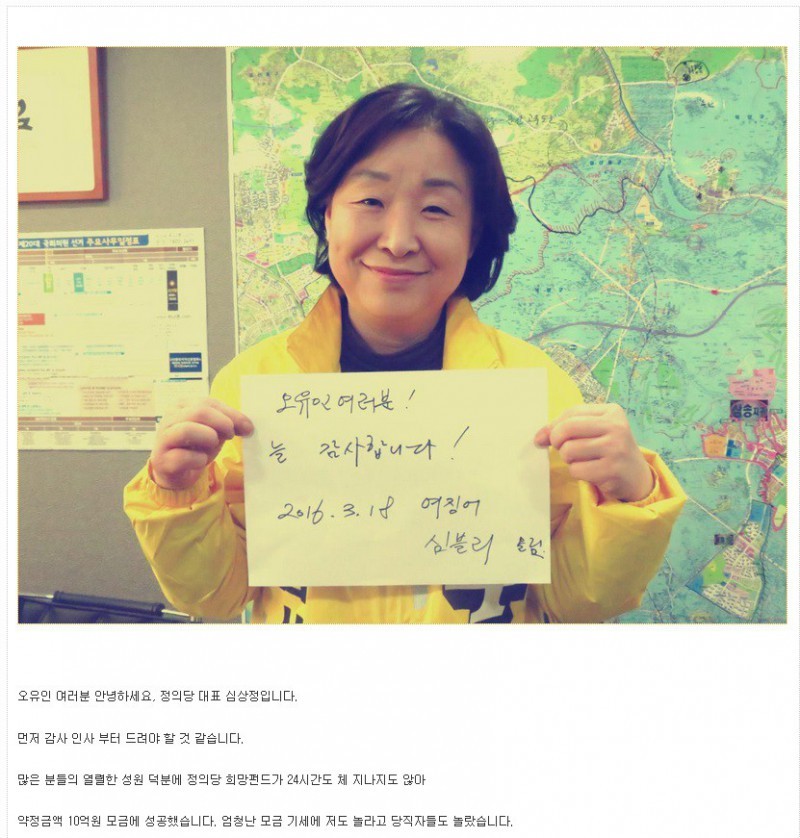 제20대 국회의원 선거 주요사무일정표
오유인 여러분!
늘 감사합니다!
2016.3.18 여징어
심블리 드림.
삼송지구
오유인 여러분 안녕하세요, 정의당 대표 심상정입니다.
먼저 감사 인사 부터 드려야 할 것 같습니다.
많은 분들의 열렬한 성원 덕분에 정의당 희망펀드가 24시간도 체 지나지도 않아
약정금액 10억원 모금에 성공했습니다. 엄청난 모금 기세에 저도 놀라고 당직자들도 놀랐습니다.